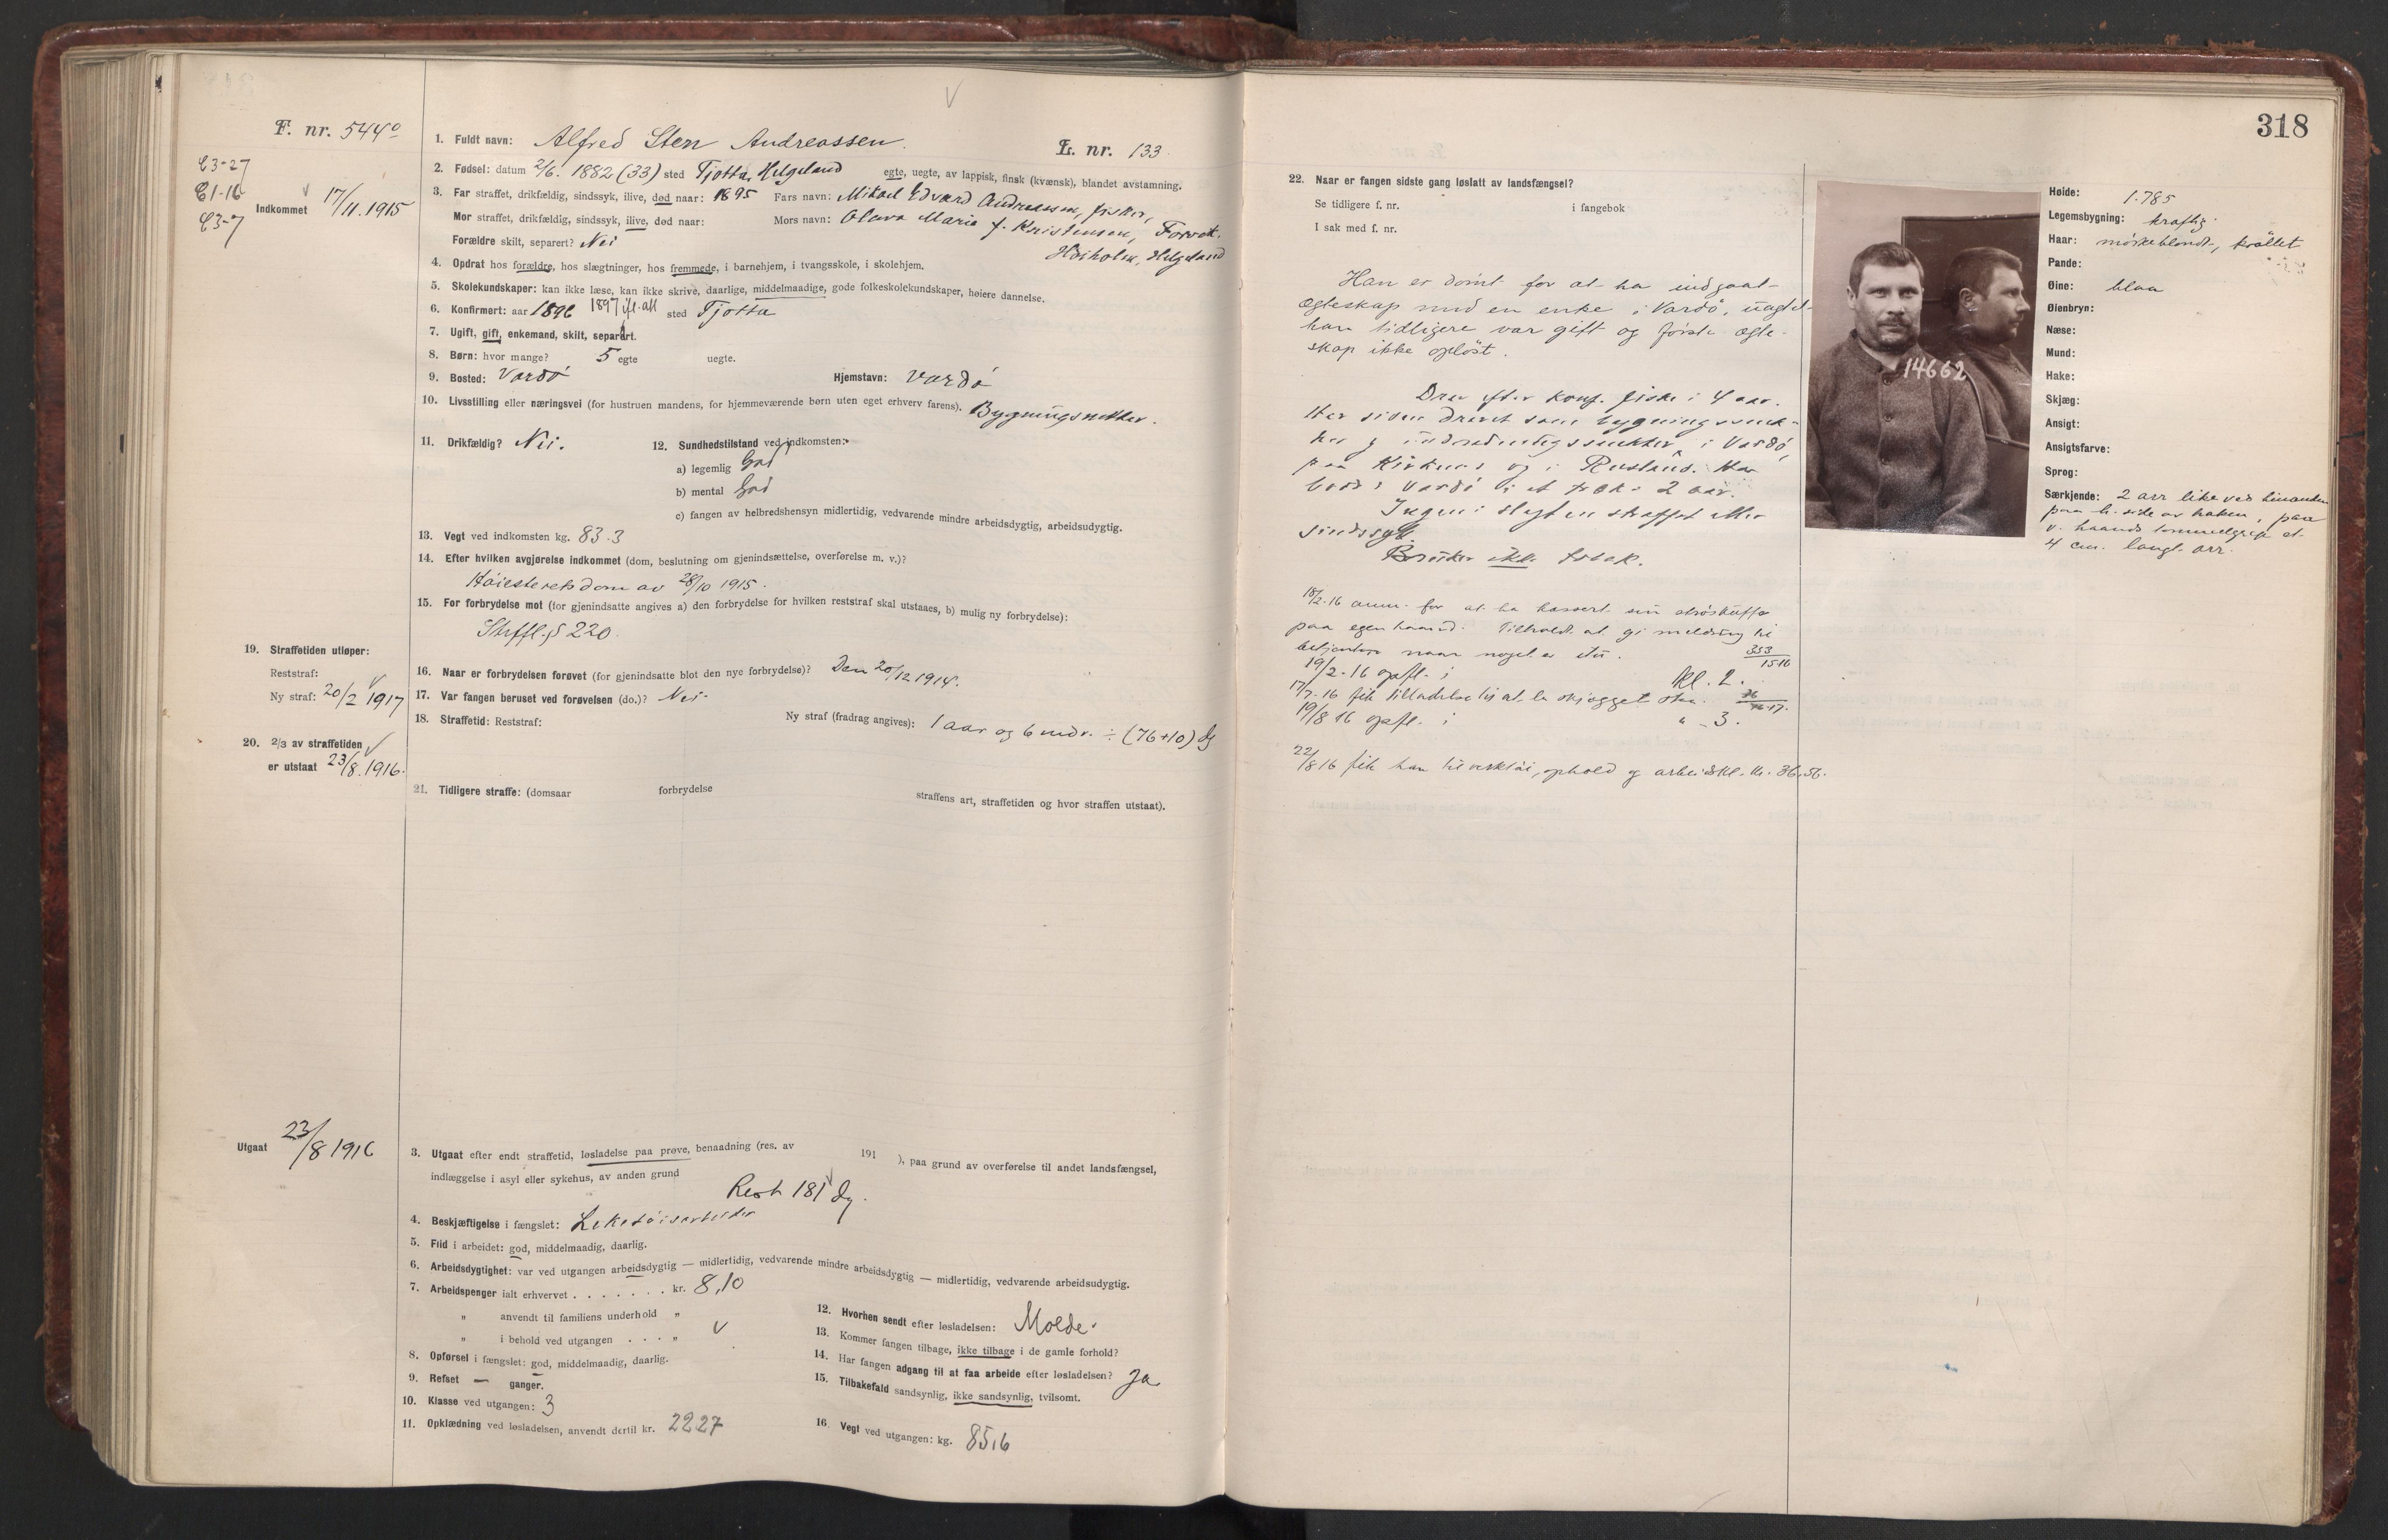 318
F. nr. 5440
C3-27
C1-16
C3-7
Indkommet 17/11.1915
1. Fuldt navn: Alfred Sten Andreassen.
L. nr. 133.
2. Fødsel: datum 2/6. 1882 (33) sted Tjøtta, Helgeland egte, uegte, av lappisk, finsk (kvænsk), blandet avstamning.
3. Far straffet, drikfældig, sindssyk, ilive, død naar: 1895 Fars navn: Mikael Edvard Andreassen, fisker,
Mor straffet, drikfældig, sindssyk, ilive, død naar: Mors navn: Olava Maria f. Kristensen, Forvik.
Forældre skilt, separert? Nei
Høiholm, Helgeland
4. Opdrat hos forældre, hos slægtninger, hos fremmede, i barnehjem, i tvangsskole, i skolehjem.
5. Skolekundskaper: kan ikke læse, kan ikke skrive, daarlige, middelmaadige, gode folkeskolekundskaper, høiere dannelse.
6. Konfirmert: aar 1896 1897 ifl. att sted Tjøtta
7. Ugift, gift, enkemand, skilt, separert.
8. Børn: hvor mange? 5 egte uegte.
9. Bosted: Vardø Hjemstavn: Vardø
10. Livsstilling eller næringsvei (for hustruen mandens, for hjemmeværende børn uten eget erhverv farens). Bygningsnekker.
11. Drikfældig? Nei.
12. Sundhetstilstand ved indkomsten:
a) legemlig God
b) mental God
c) fangen av helbredshensyn midlertidig, vedvarende mindre arbeidsdygtig, arbeidsudygtig.
13. Vegt ved indkomsten kg. 83.3
14. Efter hvilken avgjørelse indkommet (dom, beslutning om gjenindsættelse, overførelse m. v.)?
Høiesteretsdom av 28/10 1915.
15. For forbrydelse mot (for gjenindsatte angives a) den forbrydelse for hvilken reststraf skal utstaaes, b) mulig ny forbrydelse):
Strffl. § 220.
16. Naar er forbrydelsen forøvet (for gjenindsatte blot den nye forbrydelse)? Den 20/12 1914.
17. Var fangen beruset ved forøvelsen (do.)? Nei.
18. Straffetid: Reststraf: Ny straf (fradrag angives): 1 aar og 6 mdr. ÷ (76+10) dg
19. Straffetiden utløper:
Reststraf:
Ny straf: 20/2 1917
20. 2/3 av straffetiden
er utstaat 23/8.1916.
21. Tidligere straffe: (domsaar forbrydelse straffens art, straffetiden og hvor straffen utstaat).
Utgaat 23/8 1916
3. Utgaat efter endt straffetid, løsladelse paa prøve, benaadning (res. av 191 ), paa grund av overførelse til andet landsfængsel,
indlæggelse i asyl eller sykehus, av anden grund
Rest 181 dg.
4. Beskjæftigelse i fængslet: Leketøisarbeider
5. Flid i arbeidet: god, middelmaadig, daarlig.
6. Arbeidsdygtighet: var ved utgangen arbeidsdygtig — midlertidig, vedvarende mindre arbeidsdygtig — midlertidig, vedvarende arbeidsudygtig.
7. Arbeidspenger ialt erhvervet . . . . . . . kr. 8,10
" anvendt til familiens underhold "
" i behold ved utgangen . . . "
8. Opførsel i fængslet: god, middelmaadig, daarlig.
9. Refset — ganger.
10. Klasse ved utgangen: 3
11. Opklædning ved løsladelsen, anvendt dertil kr. 22 27
12. Hvorhen sendt efter løsladelsen: Molde.
13. Kommer fangen tilbage, ikke tilbage i de gamle forhold?
14. Har fangen adgang til at faa arbeide efter løsladelsen? Ja
15. Tilbakefald sandsynlig, ikke sandsynlig, tvilsomt.
16. Vegt ved utgangen: kg. 85,6
22. Naar er fangen sidste gang løslatt av landsfængsel?
Se tidligere f. nr. i fangebok
I sak med f. nr.
Han er dømt for at ha indgaat
ægteskap med en enke i Vardø, uagtet
han tidligere var gift og første ægte-
skap ikke opløst.
Drev efter konf. fiske i 4 aar.
Har siden drevet som bygningssnek-
ker og indredningssnekker i Vardø,
paa Kirkenes og i Rusland. Har
bodd i Vardø i et træk i 2 aar.
Ingen i slegten straffet eller
sindssyk.
Bruker ikke tobak.
18/2-16 anm. for at ha kassert sin strøskuffe
paa egen haand. Tilholdt at gi melding til
betjenten naar noget er itu. 353/1516
19/2-16 opfl. i kl. 2.
17/7-16 fik tilladelse til at la skjegget staa. 76/16-17.
19/8 16 opfl. i " - 3.
22/8 16 fik han til verktøi, ophold og arbeidskl. kr. 36.56.
14662
Høide: 1.785
Legemsbygning: kraftig
Haar: mørkeblondt, krøllet
Pande:
Øine: blaa
Øienbryn:
Næse:
Mund:
Hake:
Skjæg:
Ansigt:
Ansigtsfarve:
Sprog:
Særkjende: 2 arr like ved hinanden
paa h. side av haken, paa
v. haands tommelgrep et
4 cm. langt arr.